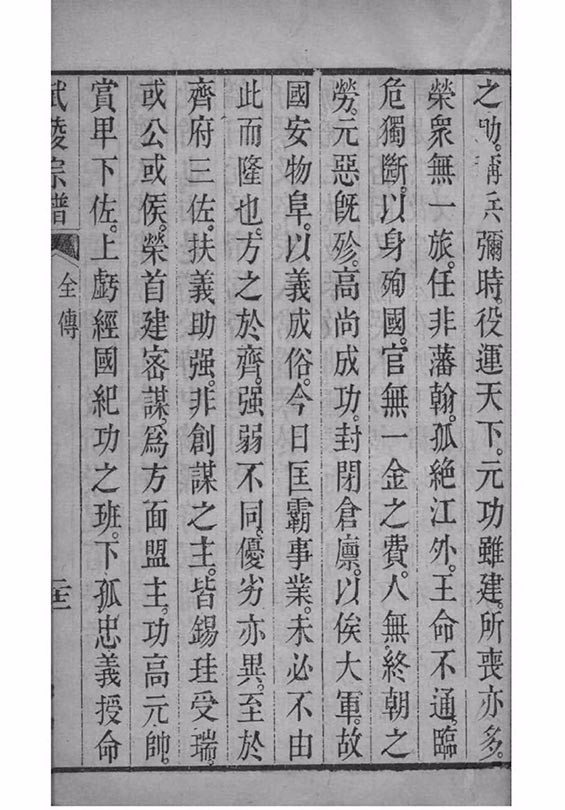 之勋。稱兵彌時。役運天下。元功雖建。所喪亦多。
榮衆無一旅。任非藩翰。孤絶江外。王命不通。臨
危獨斷。以身殉國。官無一金之費。人無終朝之
勞。元惡旣殄。高尚成功。封閉倉廩。以俟大軍。故
國安物阜。以義成俗。今日匡霸事業。未必不由
此而隆也。方之於齊。强弱不同。優劣亦異。至於
齊府三佐。扶義助强。非創謀之主。皆錫珪受瑞。
或公或侯。榮首建密謀。爲方面盟主。功高元帥。
賞卑下佐。上虧經國紀功之班。下孤忠義授命
武陵宗譜
全傳
二十二